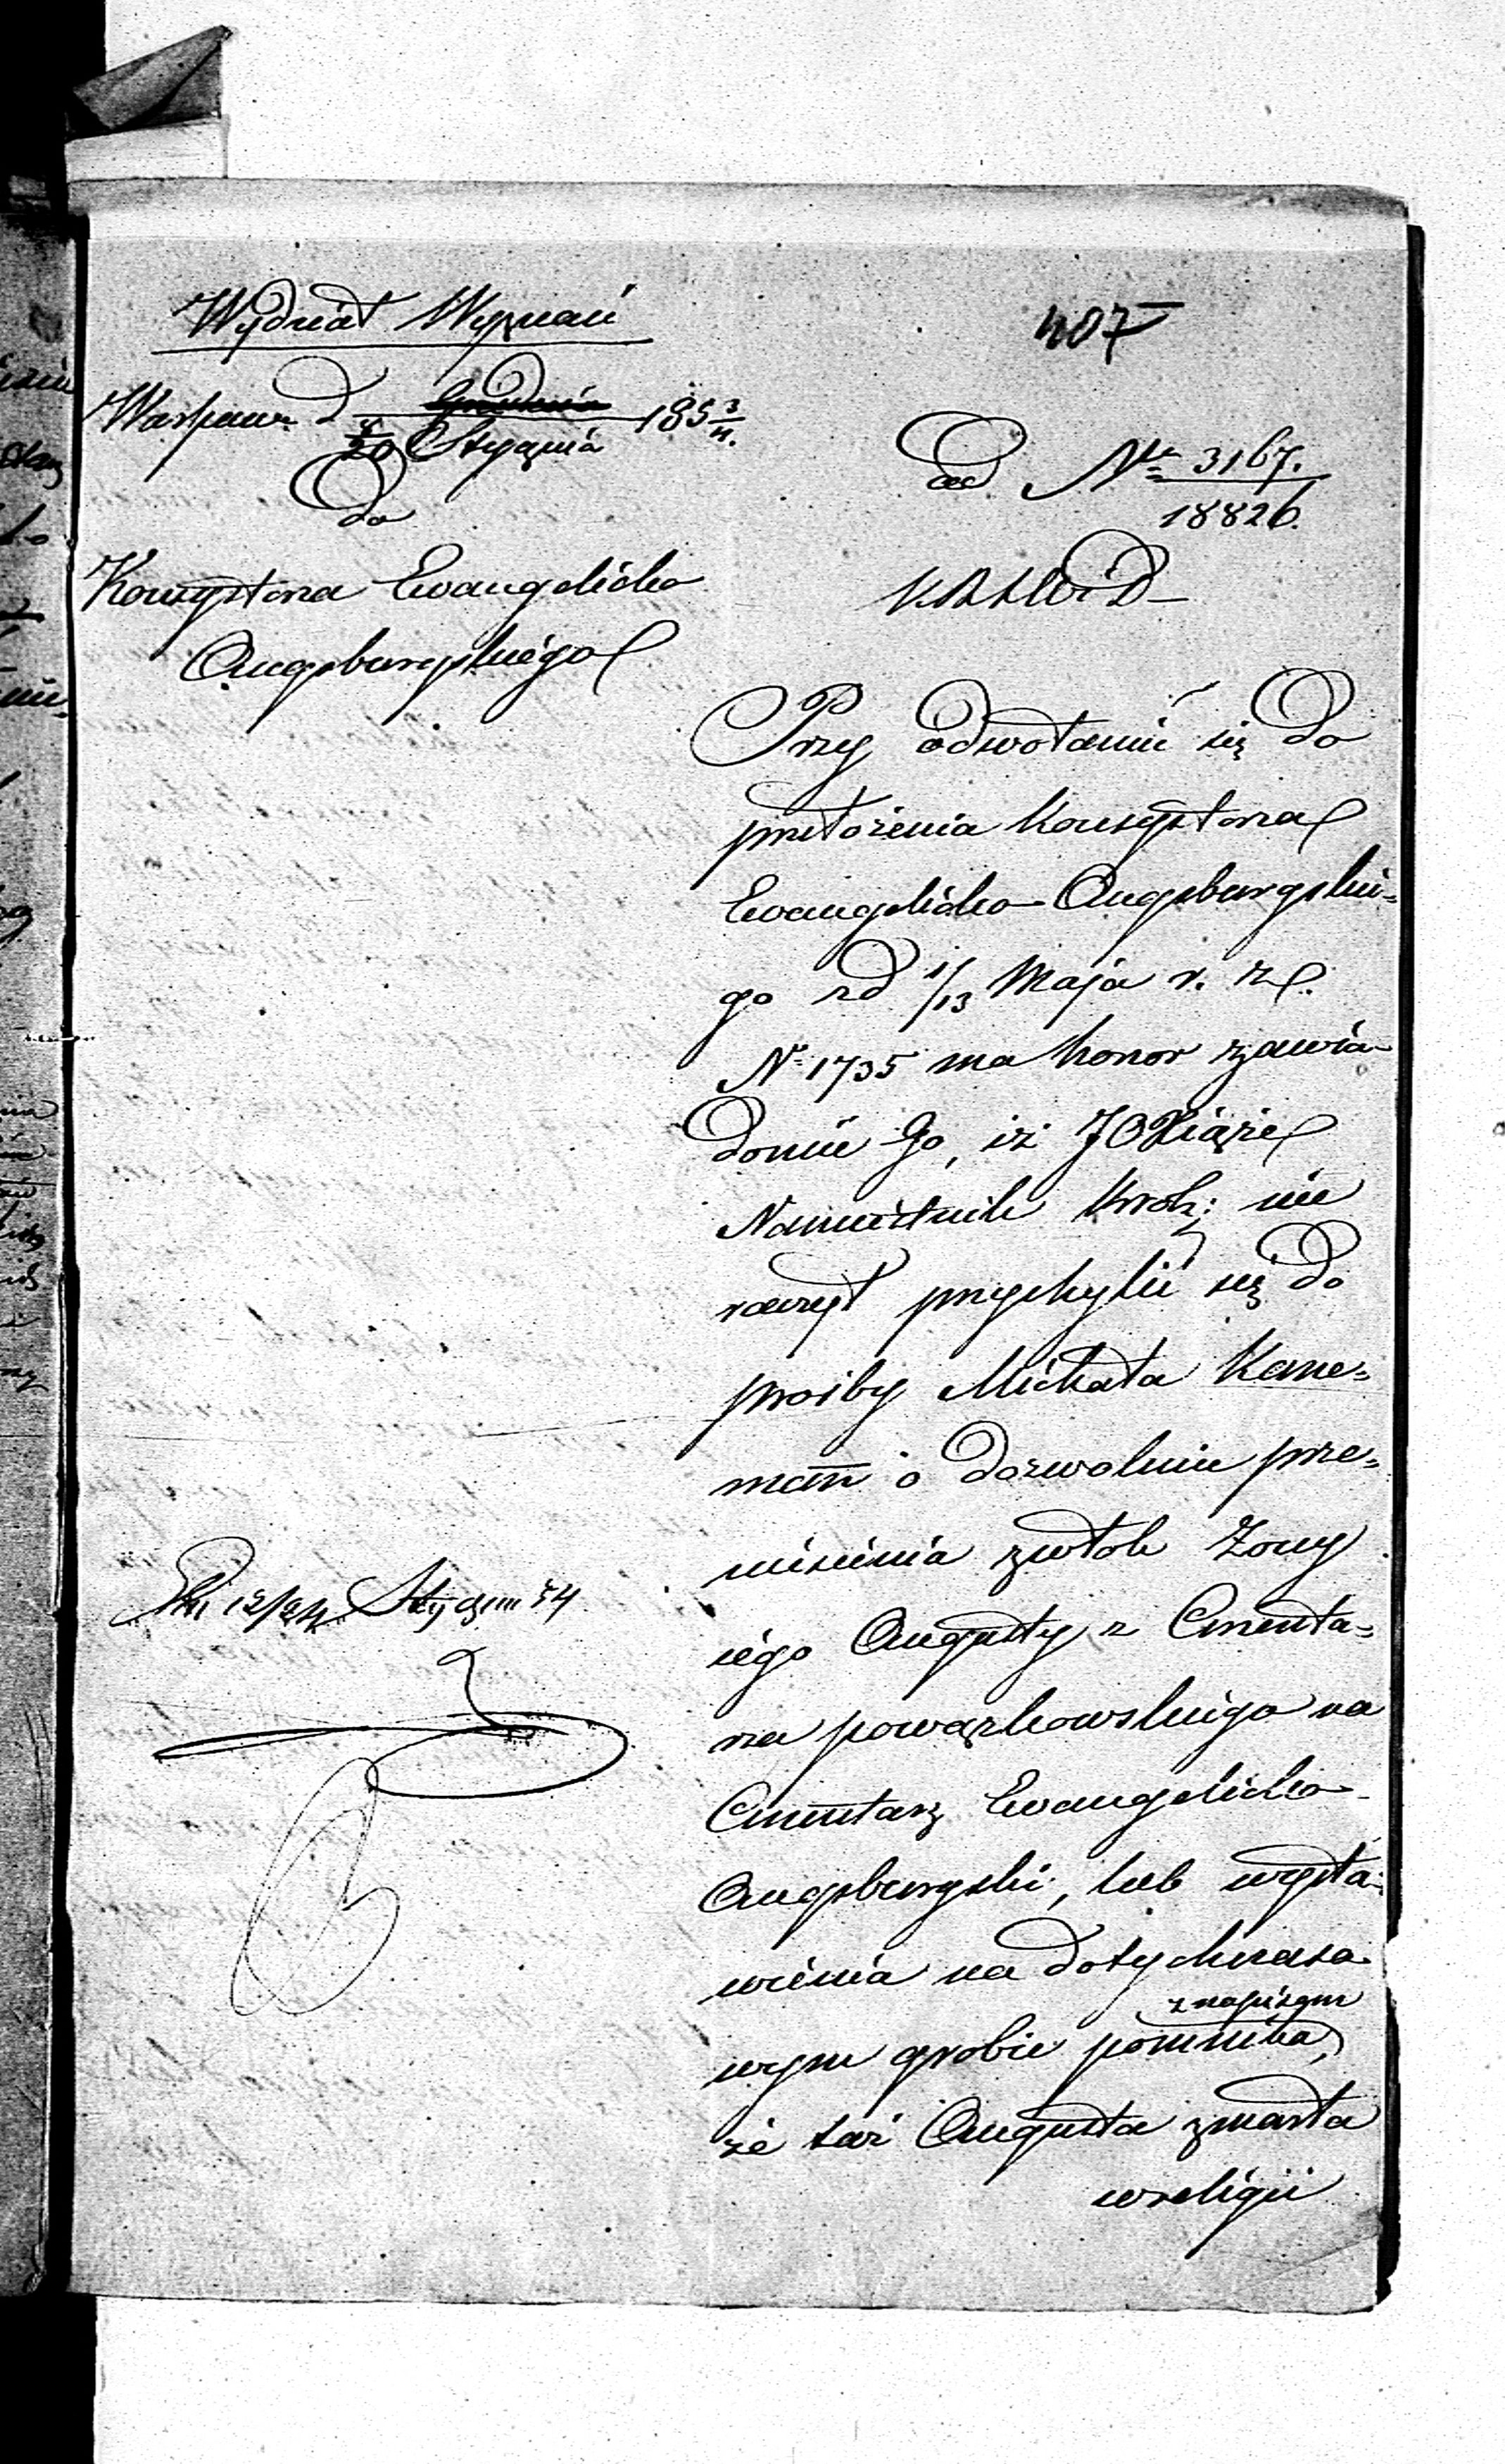 Wydział Wyznań
407
Warszawa d ~~Grudnia~~ 1853/4.
8/20 Stycznia
Do
Konsystorza Ewangelicko
Augsburgskiego
ad Nr 3167.
18826.
KRSWiD
Przy odwołaniu się do
przełożenia Konsystorza
Ewangelicko-Augsburgskie=
go z d 1/13 Maja r. z.
Nr 1735 ma honor zawia-
domić Go, iż JO Xiąże
Namiestnik Król: nie
raczył przychylić się do
prośby Michała Kane=
man o dozwolenie prze=
niesienia zwłok Żony
iego Augusty z Cmenta=
rza powązkowskiego na
Cmentarz Ewangelicko-
Augsburgski, lub wysta-
wienia na dotychczaso-
wym grobie pomnika,
z napisem
że taż Augusta zmarła
w religii
12/24 Stycznia 54